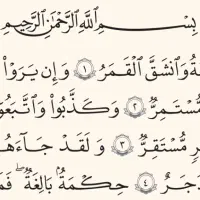 بِسْمِ ٱللَّهِ ٱلرَّحْمَٰنِ ٱلرَّحِيمِ
ةُ وَٱنشَقَّ ٱلْقَمَرُ ١ وَإِن يَرَوْا۟
مُّسْتَمِرٌّ ٢ وَكَذَّبُوا۟ وَٱتَّبَعُو
رٍ مُّسْتَقِرٌّ ٣ وَلَقَدْ جَآءَهُ
دَجَرٌ ٤ حِكْمَةٌۢ بَٰلِغَةٌ ۖ فَمَ